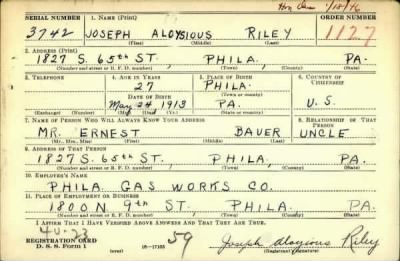 Hon Dis 1/18/46
SERIAL NUMBER 1. NAME (Print) ORDER NUMBER
3742 JOSEPH ALOYSIOUS RILEY 1127
(First) (Middle) (Last)
2. ADDRESS (Print)
1827 S. 65th ST. PHILA. PA.
(Number and street or R. F. D. number) (Town) (County) (State)
3. TELEPHONE 4. AGE IN YEARS 5. PLACE OF BIRTH 6. COUNTRY OF CITIZENSHIP
27 PHILA.
DATE OF BIRTH (Town or county)
May 24, 1913 PA. U.S.
(Exchange) (Number) (Mo.) (Day) (Yr.) (State or country)
7. NAME OF PERSON WHO WILL ALWAYS KNOW YOUR ADDRESS 8. RELATIONSHIP OF THAT PERSON
MR. ERNEST BAUER UNCLE
(Mr., Mrs., Miss) (First) (Middle) (Last)
9. ADDRESS OF THAT PERSON
1827 S. 65th ST. PHILA. PA.
(Number and street or R. F. D. number) (Town) (County) (State)
10. EMPLOYER'S NAME
PHILA. GAS WORKS CO.
11. PLACE OF EMPLOYMENT OR BUSINESS
1800 N. 9th ST. PHILA. PA.
(Number and street or R. F. D. number) (Town) (County) (State)
I AFFIRM THAT I HAVE VERIFIED ABOVE ANSWERS AND THAT THEY ARE TRUE.
REGISTRATION CARD
D. S. S. Form 1 (over) 16-17105 59 Joseph Aloysious Riley
(Registrant's signature)